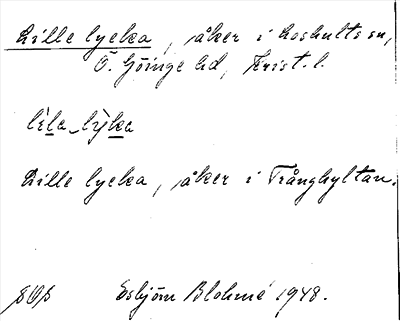 Lille lycka, åker i Loshults sn,
Ö. Göinge hd, Krist. l.
lìla_lỳka
Lille lycka, åker i Trånghyltan.
Esbjörn Blohmé 1948.